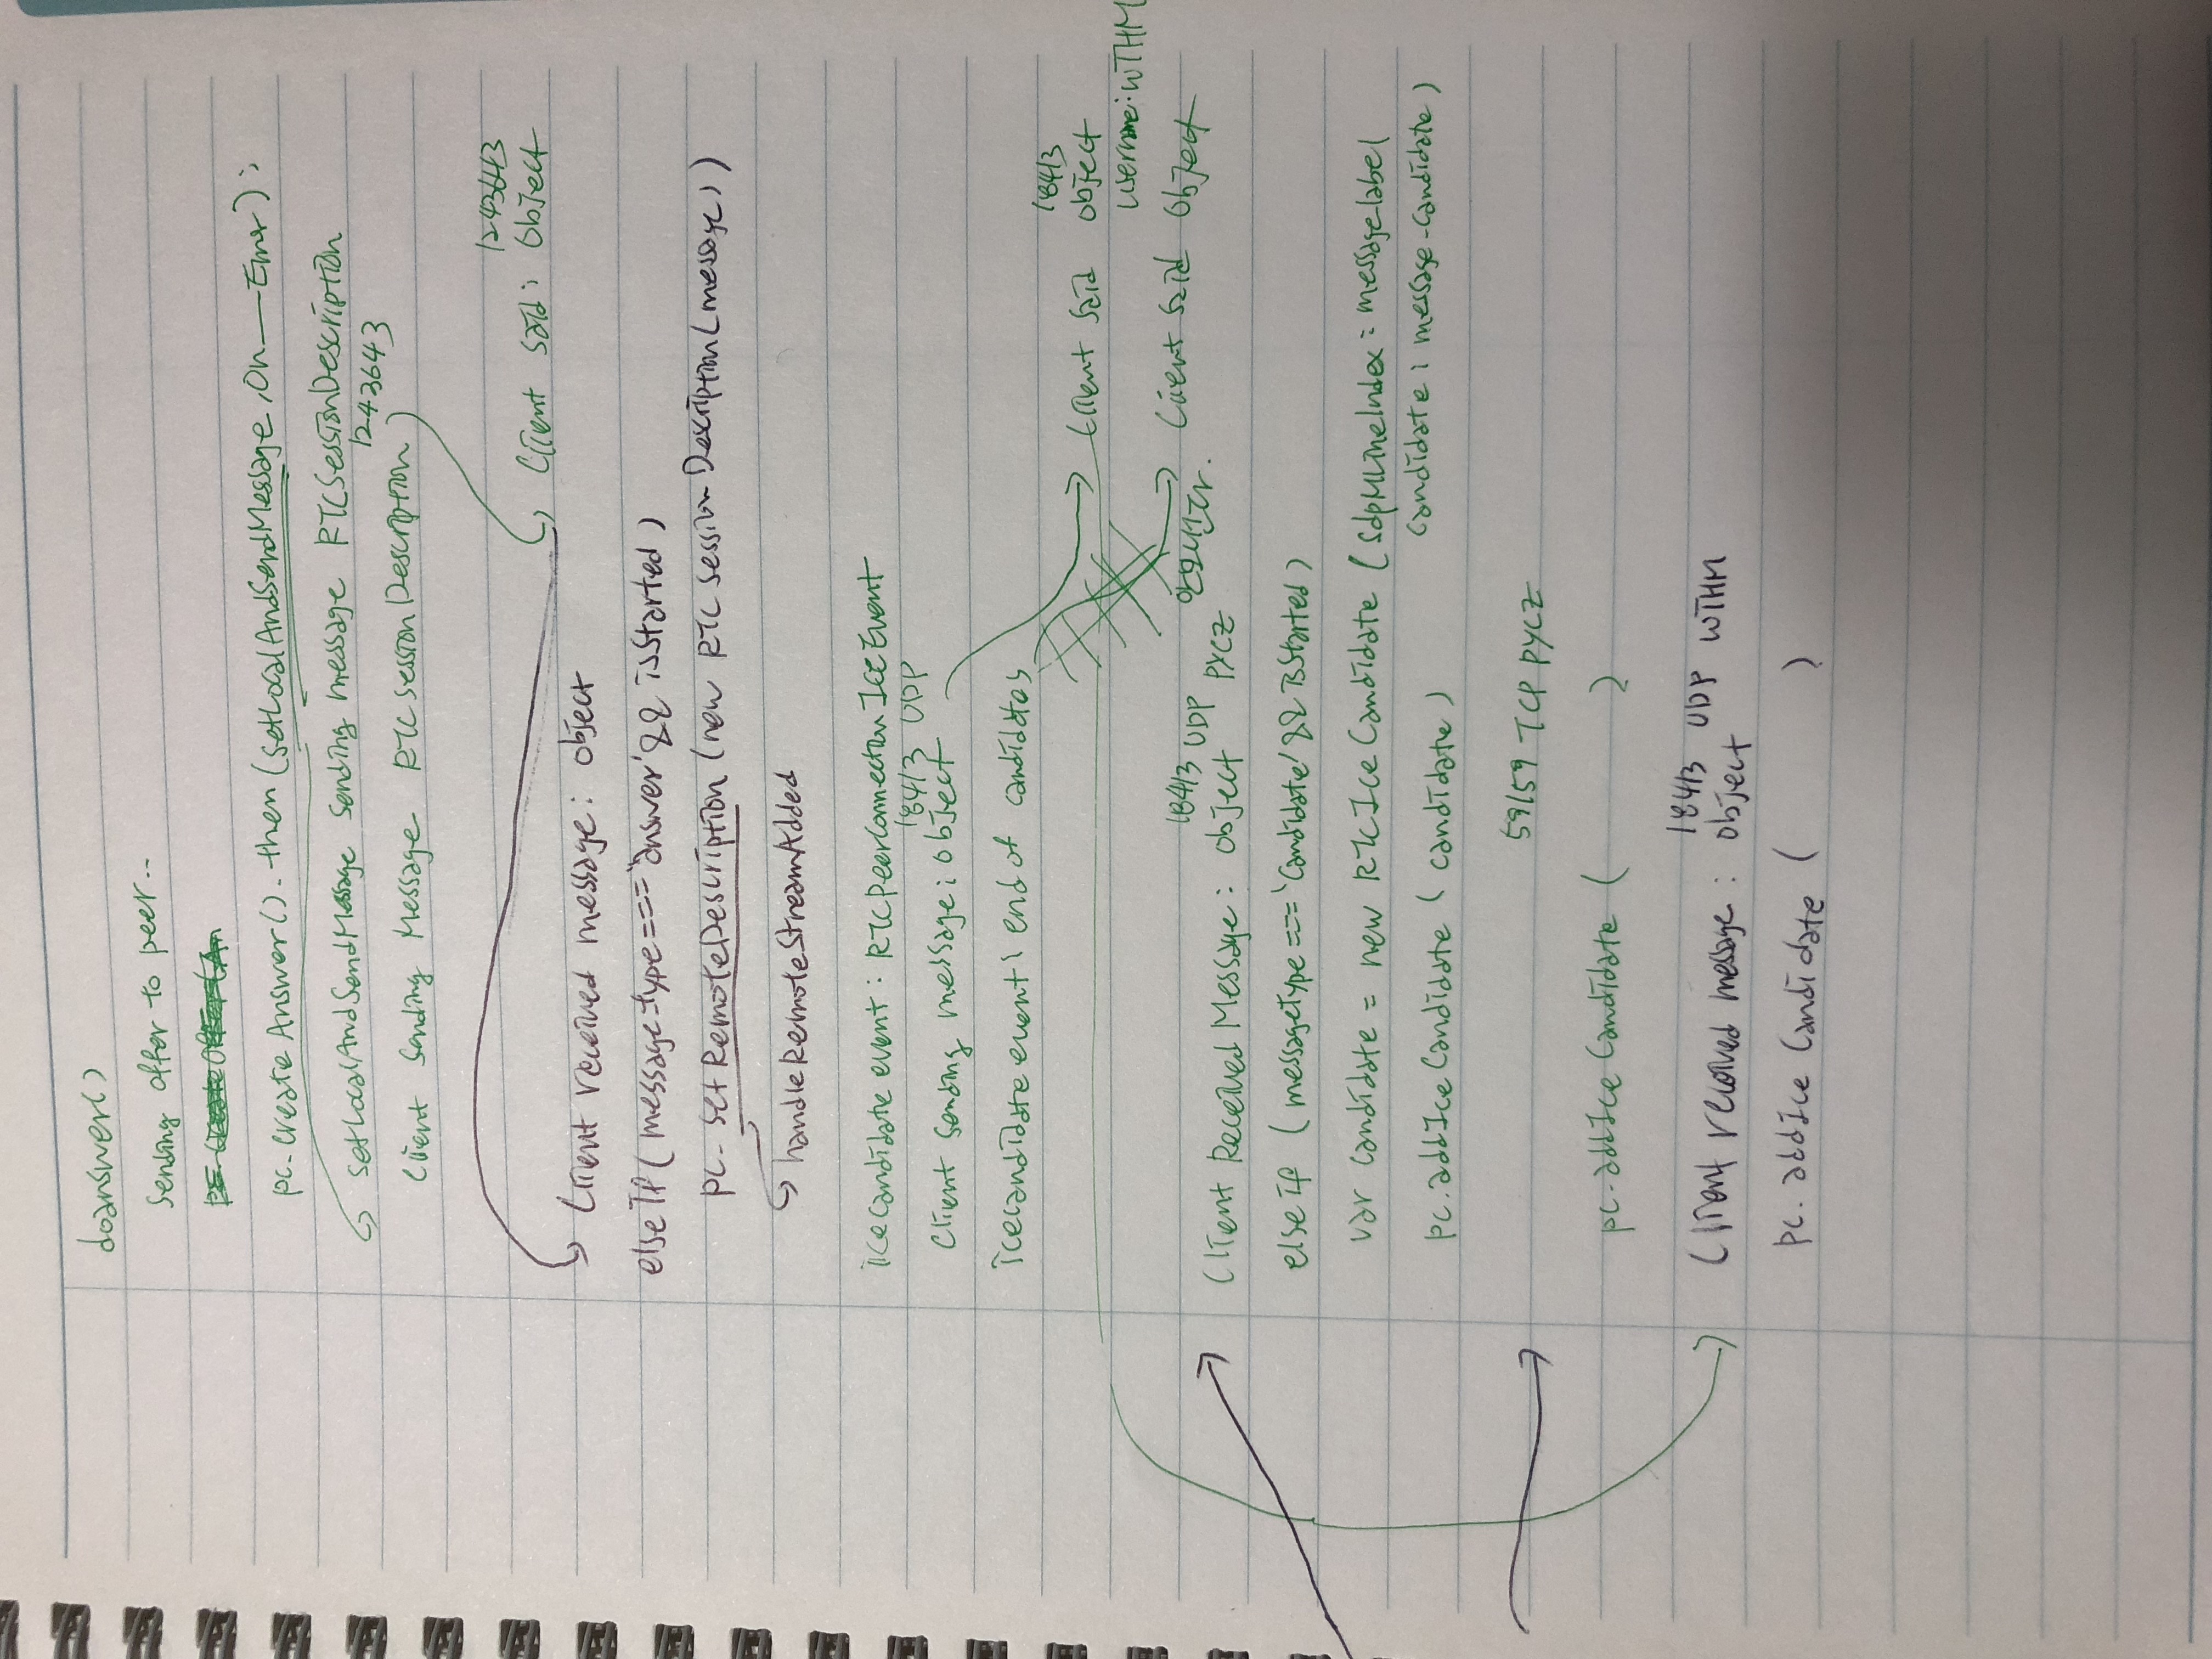 doanswer()
Sending offer to peer..
pc. createOffer(An
pc. create Answer(). then (setLocalAndSendMessage, On—Error);
setLocalAndSendMessage Sending message RTCSessionDescription
1243643
Client Sending Message RTCSessionDescription
1243643
Client said: Object
Client received message: object
else if (message.type === 'answer' && isStarted)
pc. setRemoteDescription (new RTCSessionDescription(message))
handleRemoteStreamAdded
icecandidate event: RTCPeerConnectionIceEvent
18413 UDP
Client sending message: object
icecandidate event: end of candidates
18413
Client said object
username: WTHM
Client said object
안보낸다.
18413 UDP PYCZ
Client Received Message: object
else if (messagetype === 'Candidate' && isStarted)
var candidate = new RTCIceCandidate (sdpMLineIndex: message label
candidate: message-candidate)
pc. addIceCandidate (candidate)
59159 TCP PYCZ
pc. addIceCandidate ( )
18413 UDP WTHM
Client received message: object
pc. addIce Candidate ( )